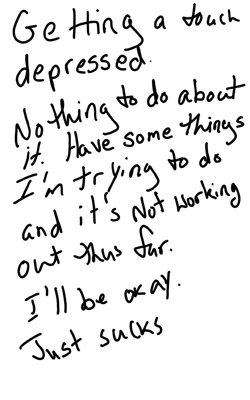 Getting a touch
depressed.
Nothing to do about
it. Have some things
I'm trying to do
and it's Not working
out thus far.
I'll be okay.
Just sucks